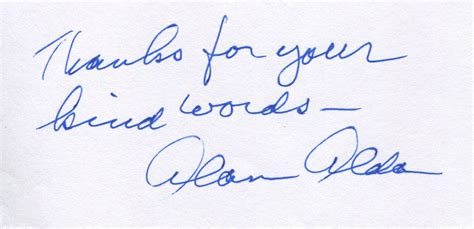 Thanks for your
kind words—
Alan Alda